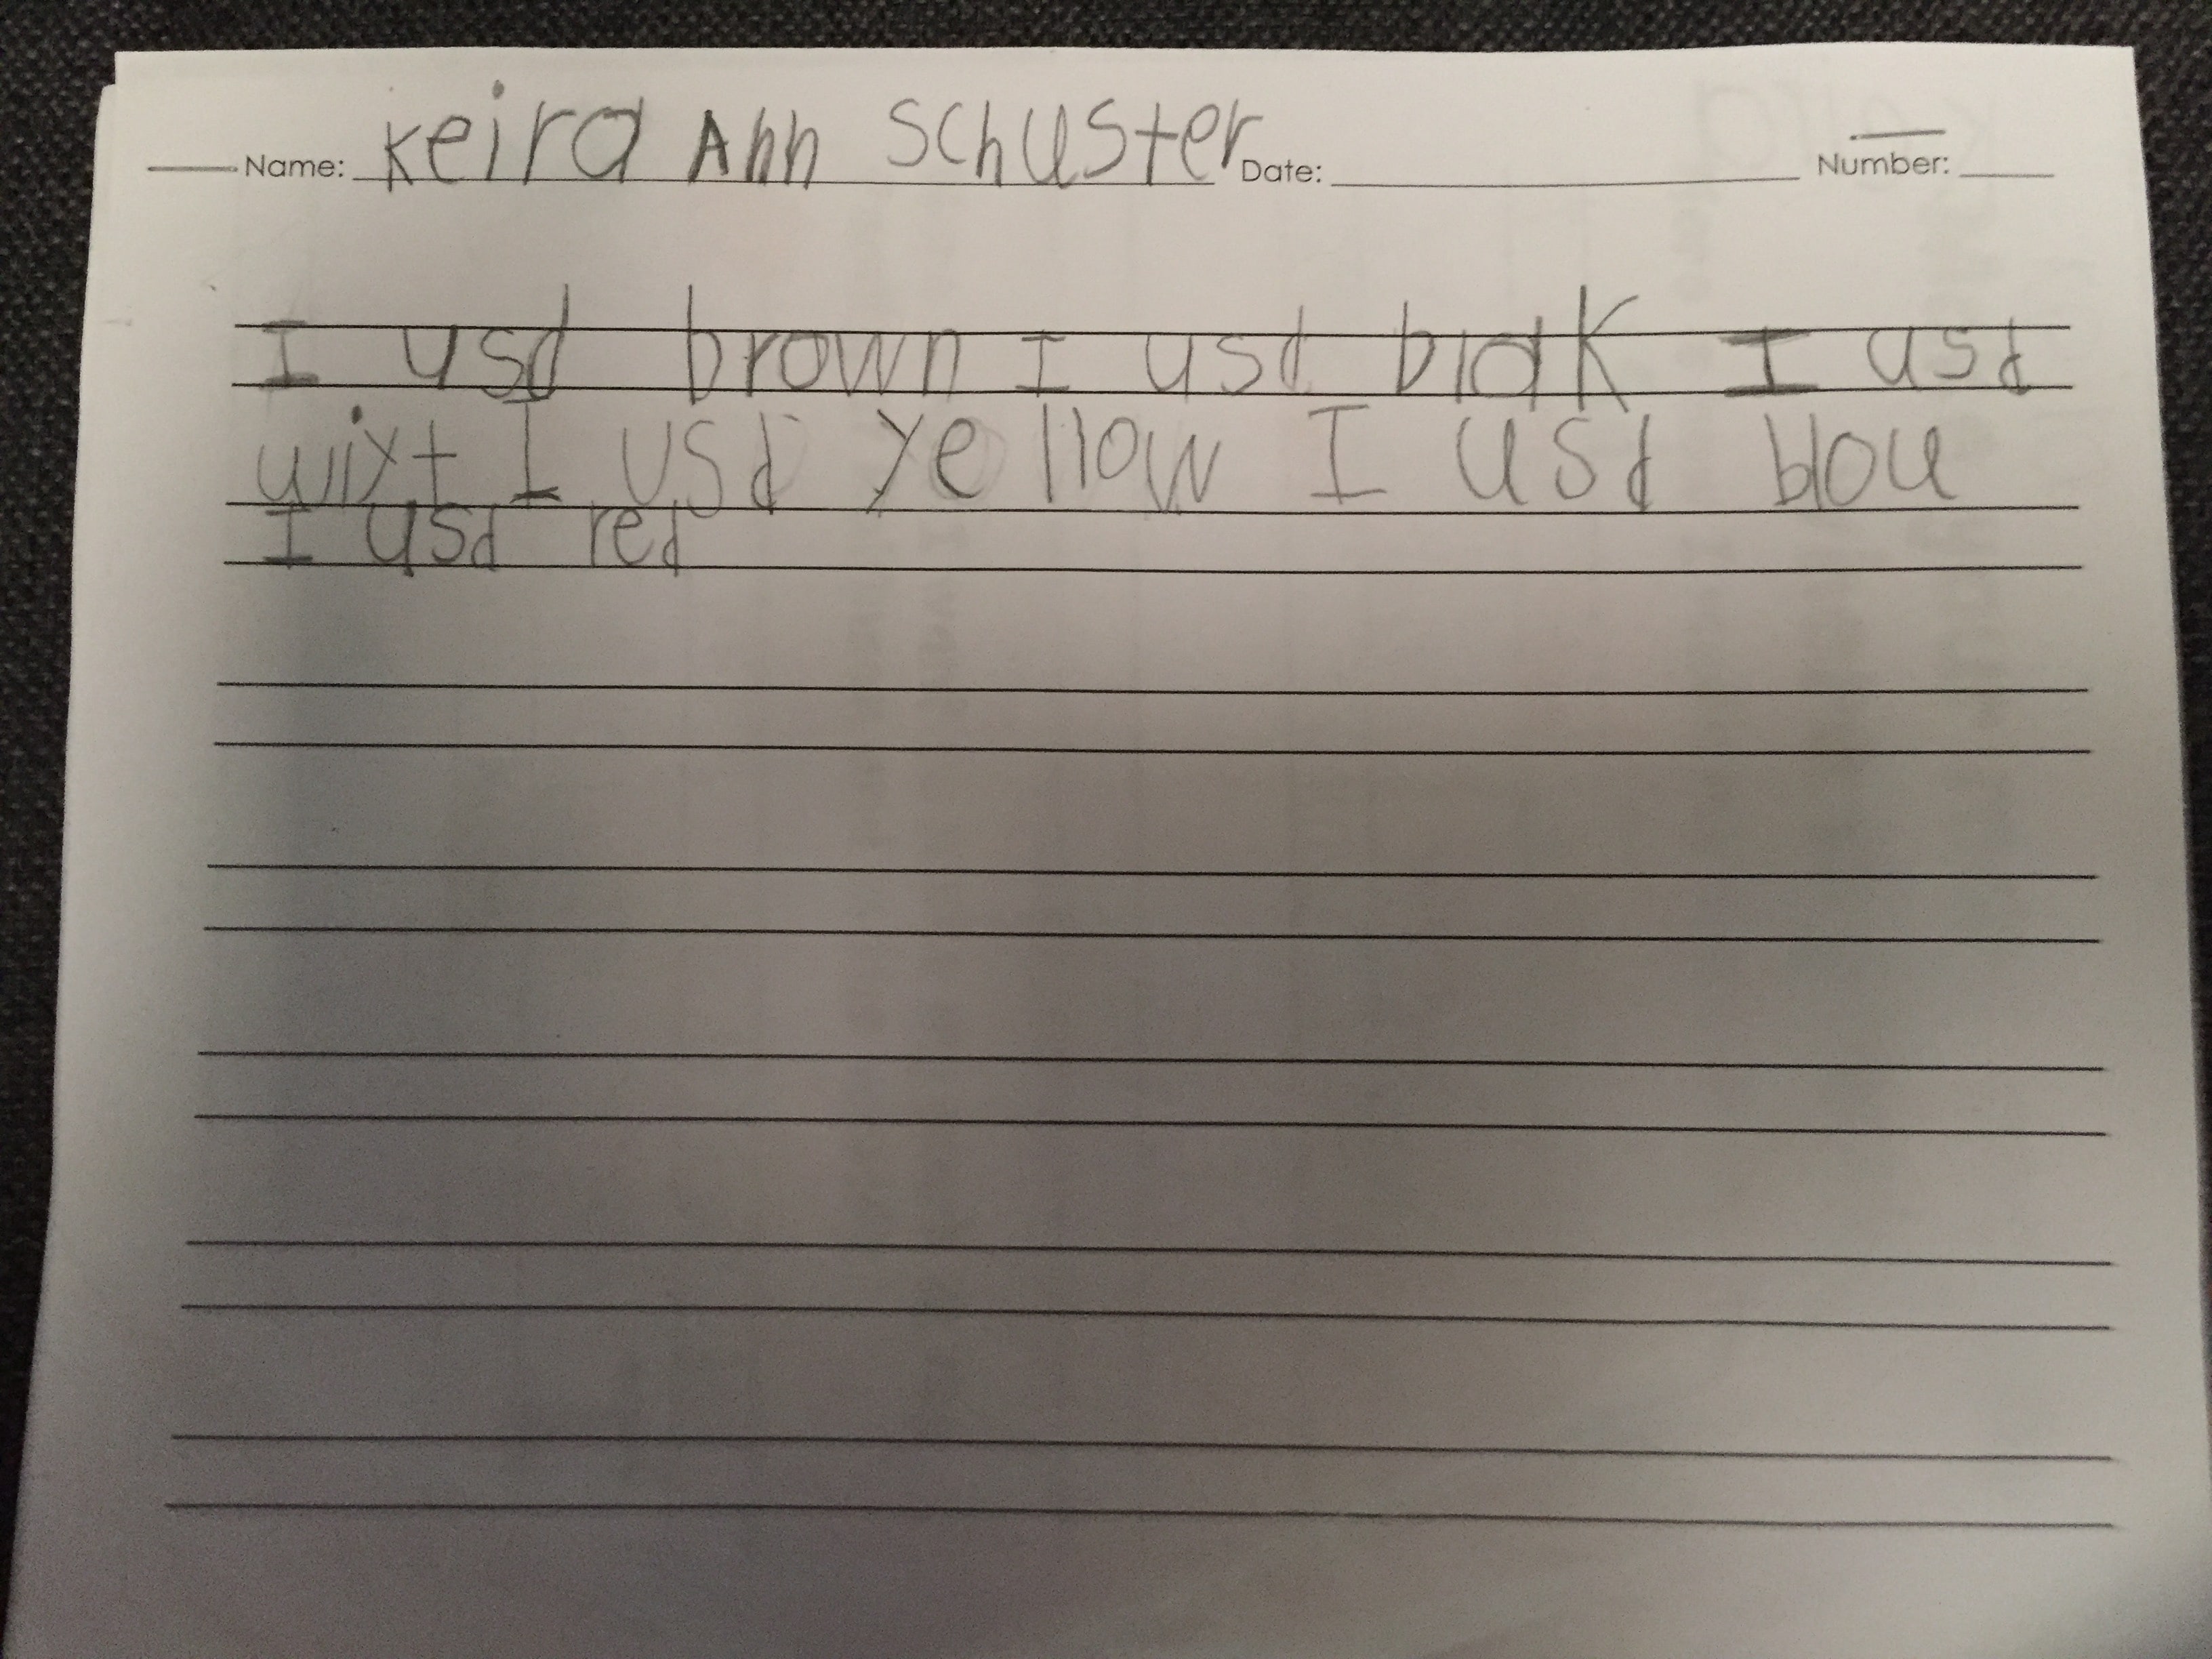 Name: Keira Ann Schuster Date: Number:
I usd brown I usd blak I usd
wixt I usd yellow I usd blou
I usd red